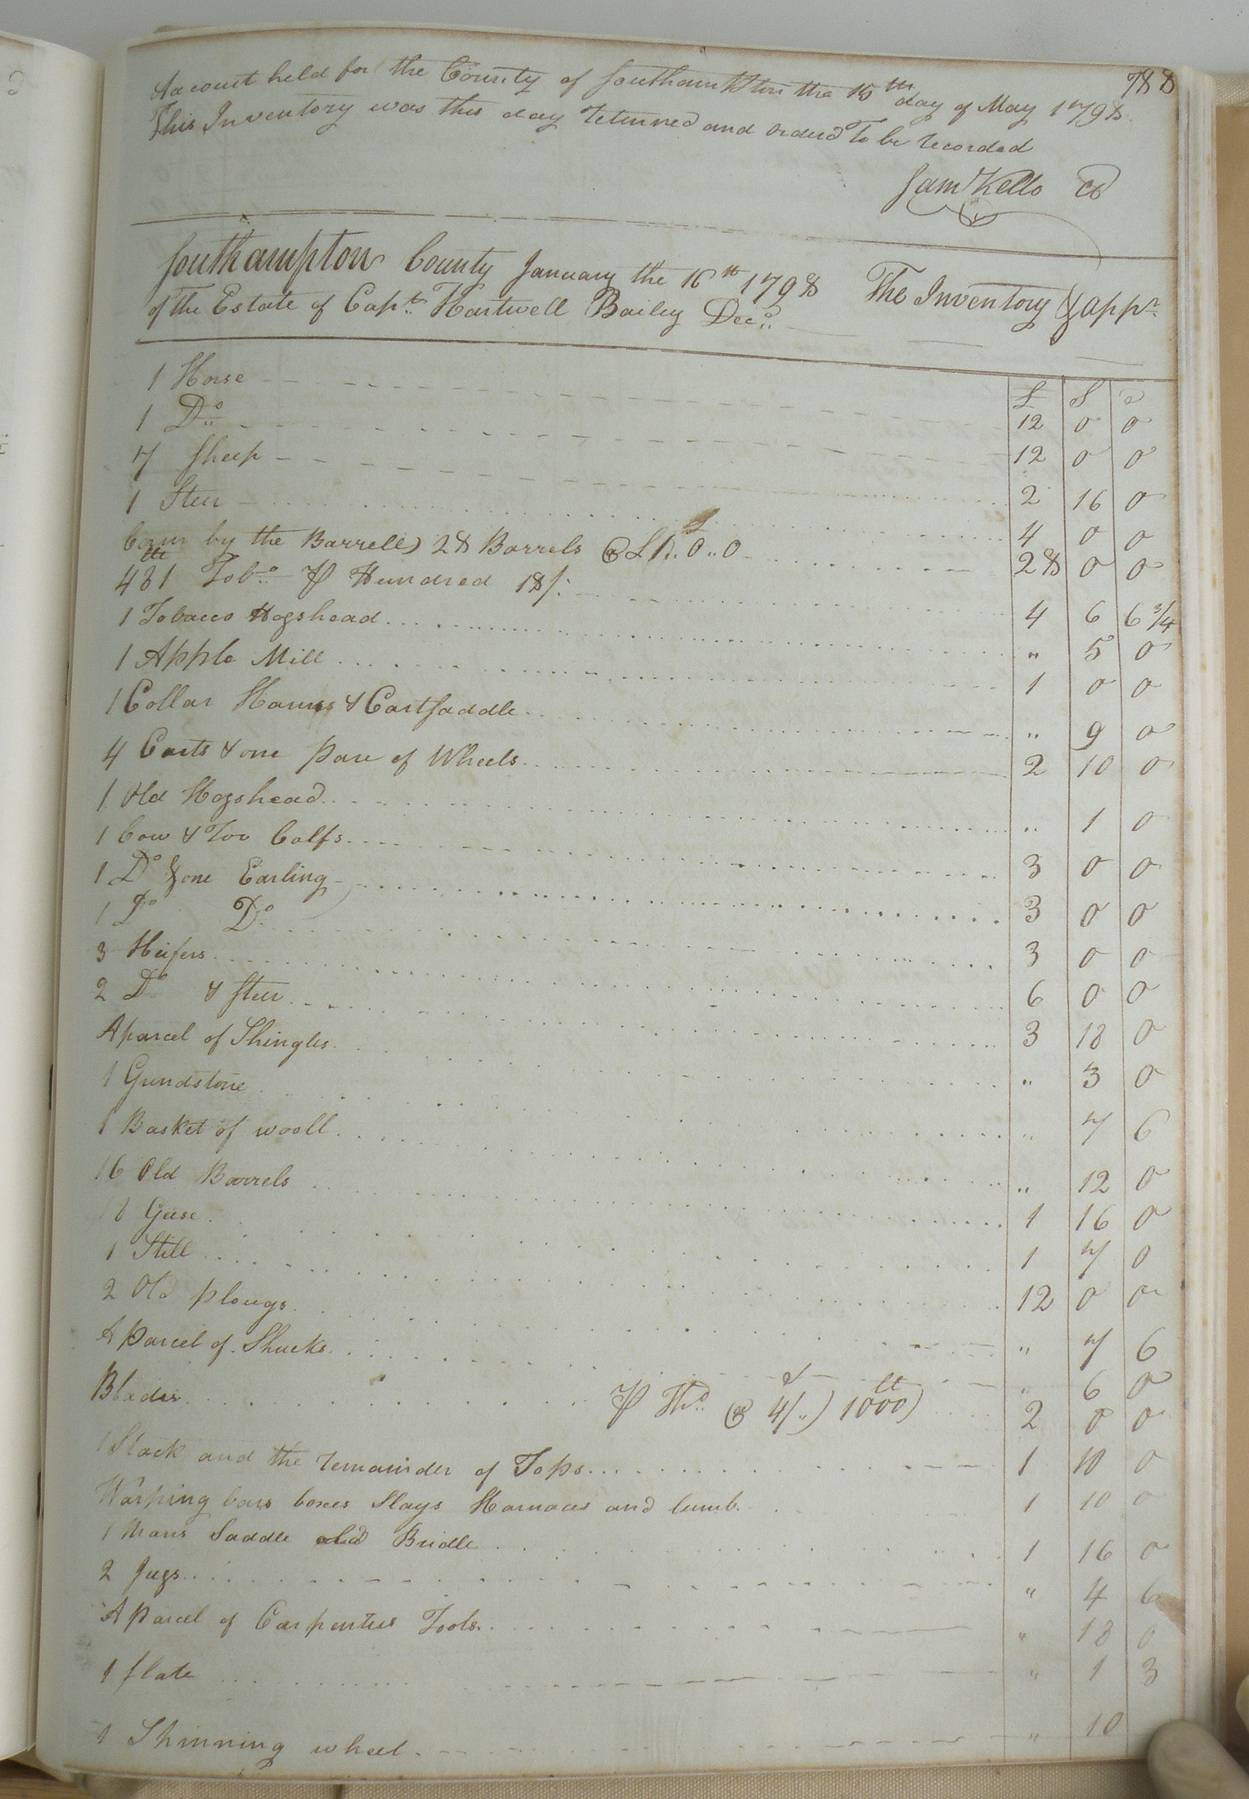 788
At a court held for the County of Southampton the 15th day of May 1798
This Inventory was this day returned and orderd to be recorded
Sam Kello CC
Southampton County January the 16th 1798 The Inventory & appr.
of the Estate of Capt. Hartwell Bailey Decd.
£ S D
1 Horse 12 0 0
1 Do 12 0 0
7 Sheep 2 16 0
1 Steer 4 0 0
Corn by the Barrell) 28 Barrels @ £1..0..0 28 0 0
481 lb Tobo. P Hundred 18/. 4 6 6 3/4
1 Tobacco Hogshead " 5 0
1 Apple Mill 1 0 0
1 Collar Hames & Cartsaddle " 9 0
4 Carts & one pare of Wheels 2 10 0
1 Old Hogshead " 1 0
1 Cow & Too Calfs 3 0 0
1 Do & one Earling 3 0 0
1 Do Do 3 0 0
3 Heifers 6 0 0
2 Do & Steer 3 18 0
A parcel of Shingles " 3 0
1 Grindstone " 7 6
1 Basket of wooll " 12 0
16 Old Barrels 1 16 0
Geese 1 7 0
1 Still 12 0 0
2 Old plougs " 7 6
A Parcel of Shucks " 6 0
Blades P Hd. @ 4/..) 1000 lt) 2 0 0
1 Stack and the remainder of Tops 1 10 0
Warping bars boxes Slays Harnaces and 1 10 0
1 Mans Saddle and Bridle 1 16 0
2 Jugs " 4 6
A Parcel of Carpenters Tools " 18 0
1 Slate " 1 3
1 Spinning wheel " 10